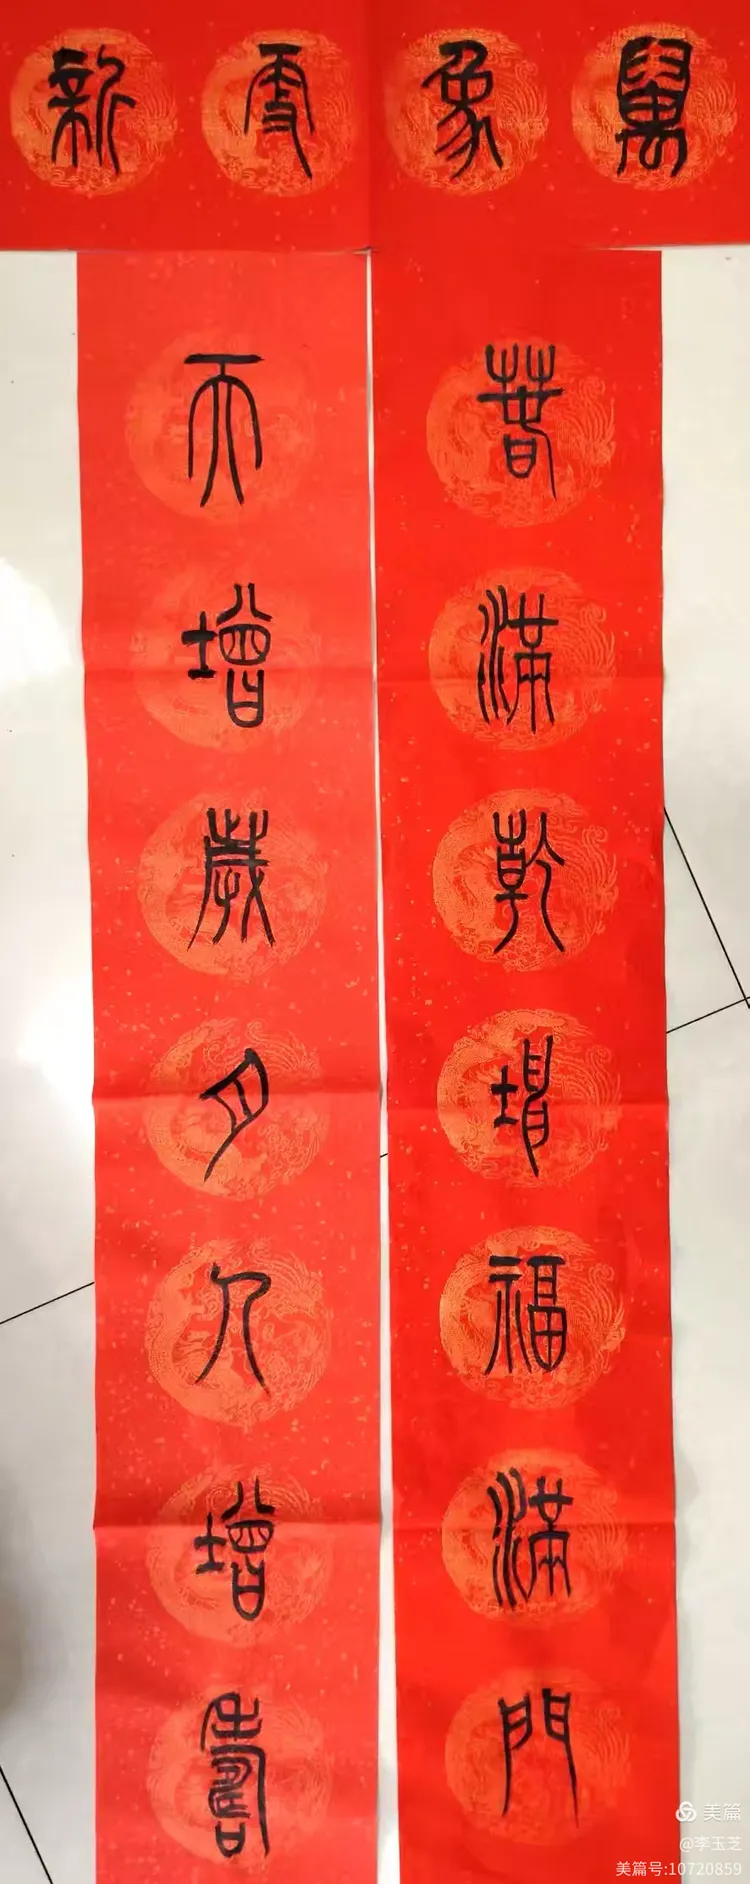 萬象更新
春滿乾坤福滿門
天增歲月人增壽
美篇
@李玉芝
美篇号:10720859